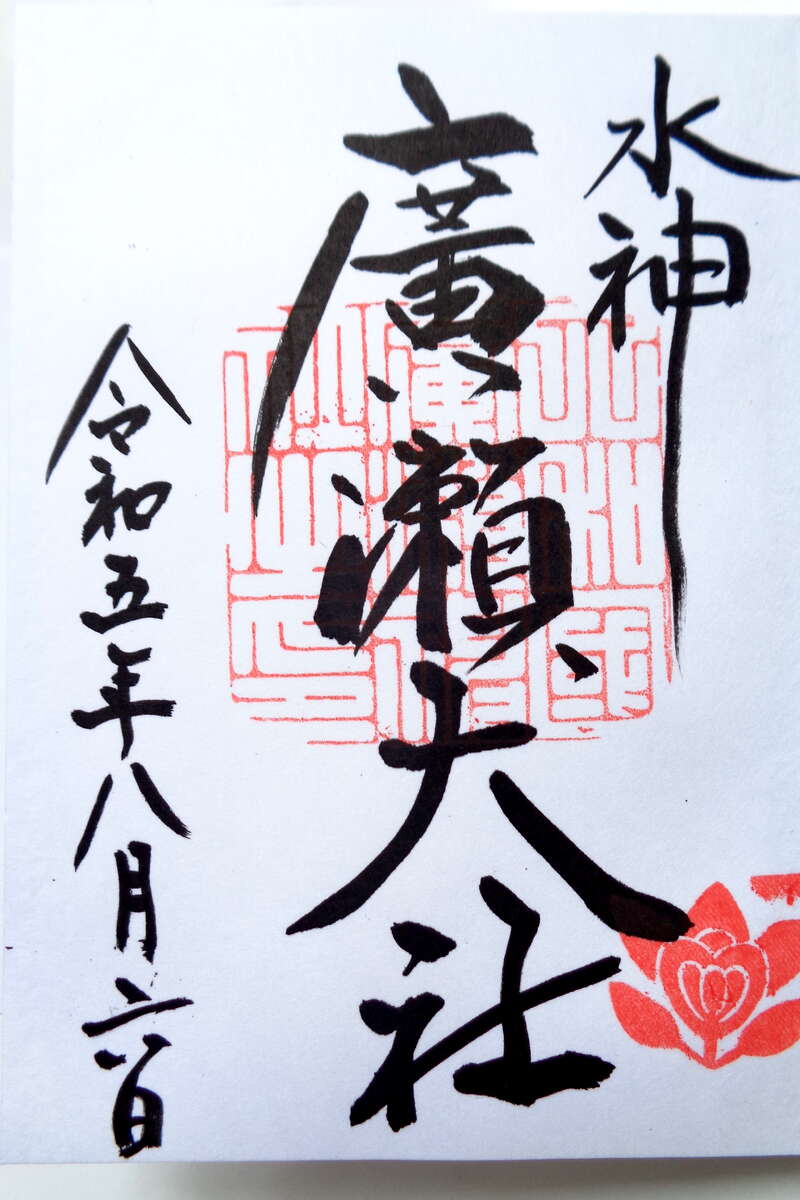 水神
廣瀬大社
令和五年八月六日